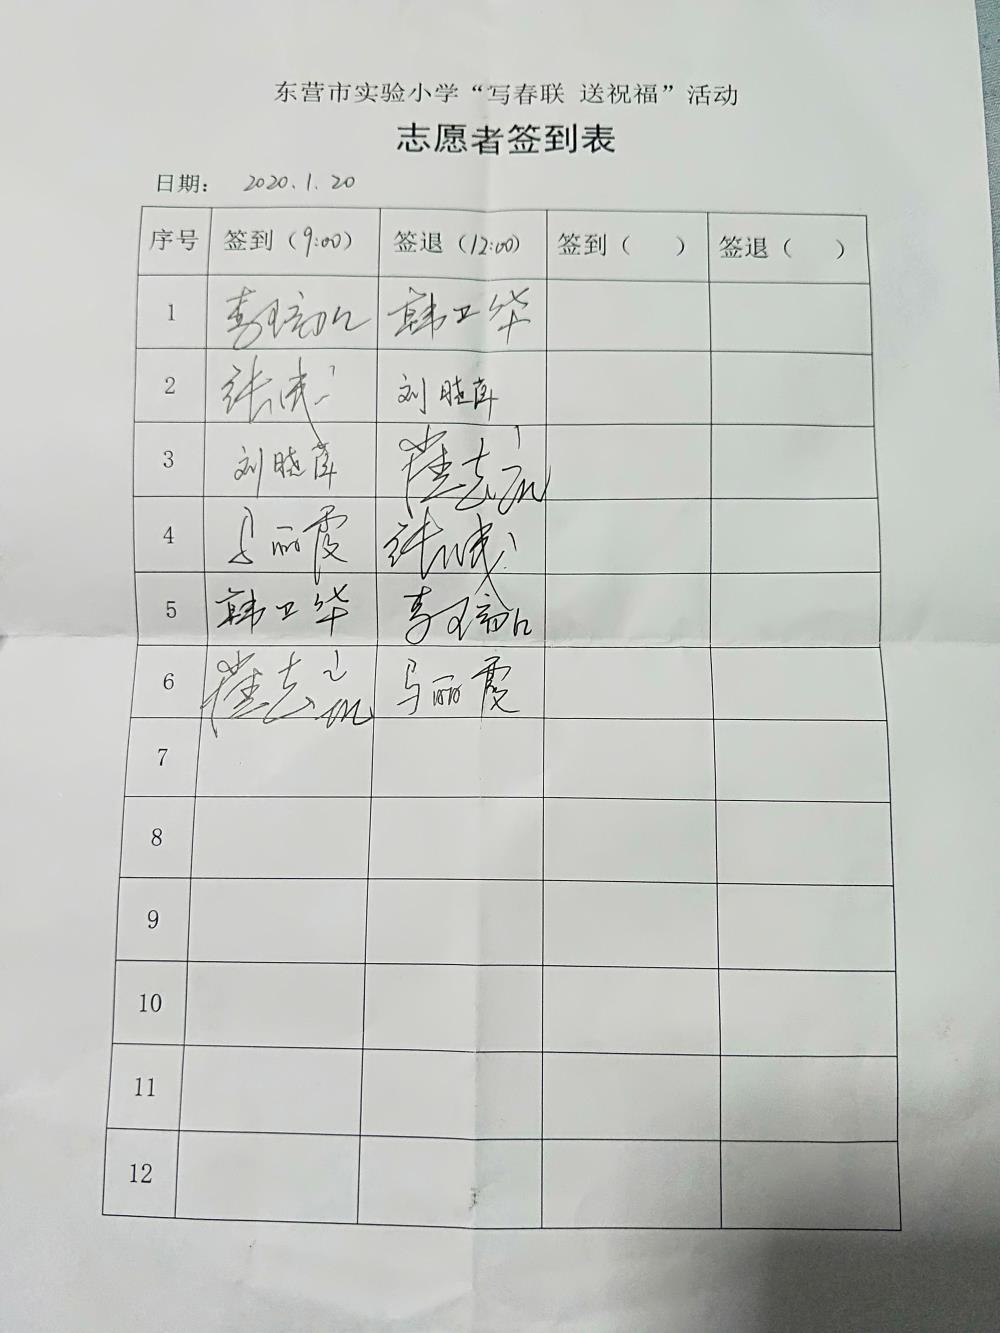 东营市实验小学“写春联 送祝福”活动
志愿者签到表
日期： 2020.1.20
序号 签到（9:00） 签退（12:00） 签到（ ） 签退（ ）
1 韩卫华
2 刘晓萍
3 刘晓萍
4 马丽霞
5 韩卫华
6 马丽霞
7
8
9
10
11
12